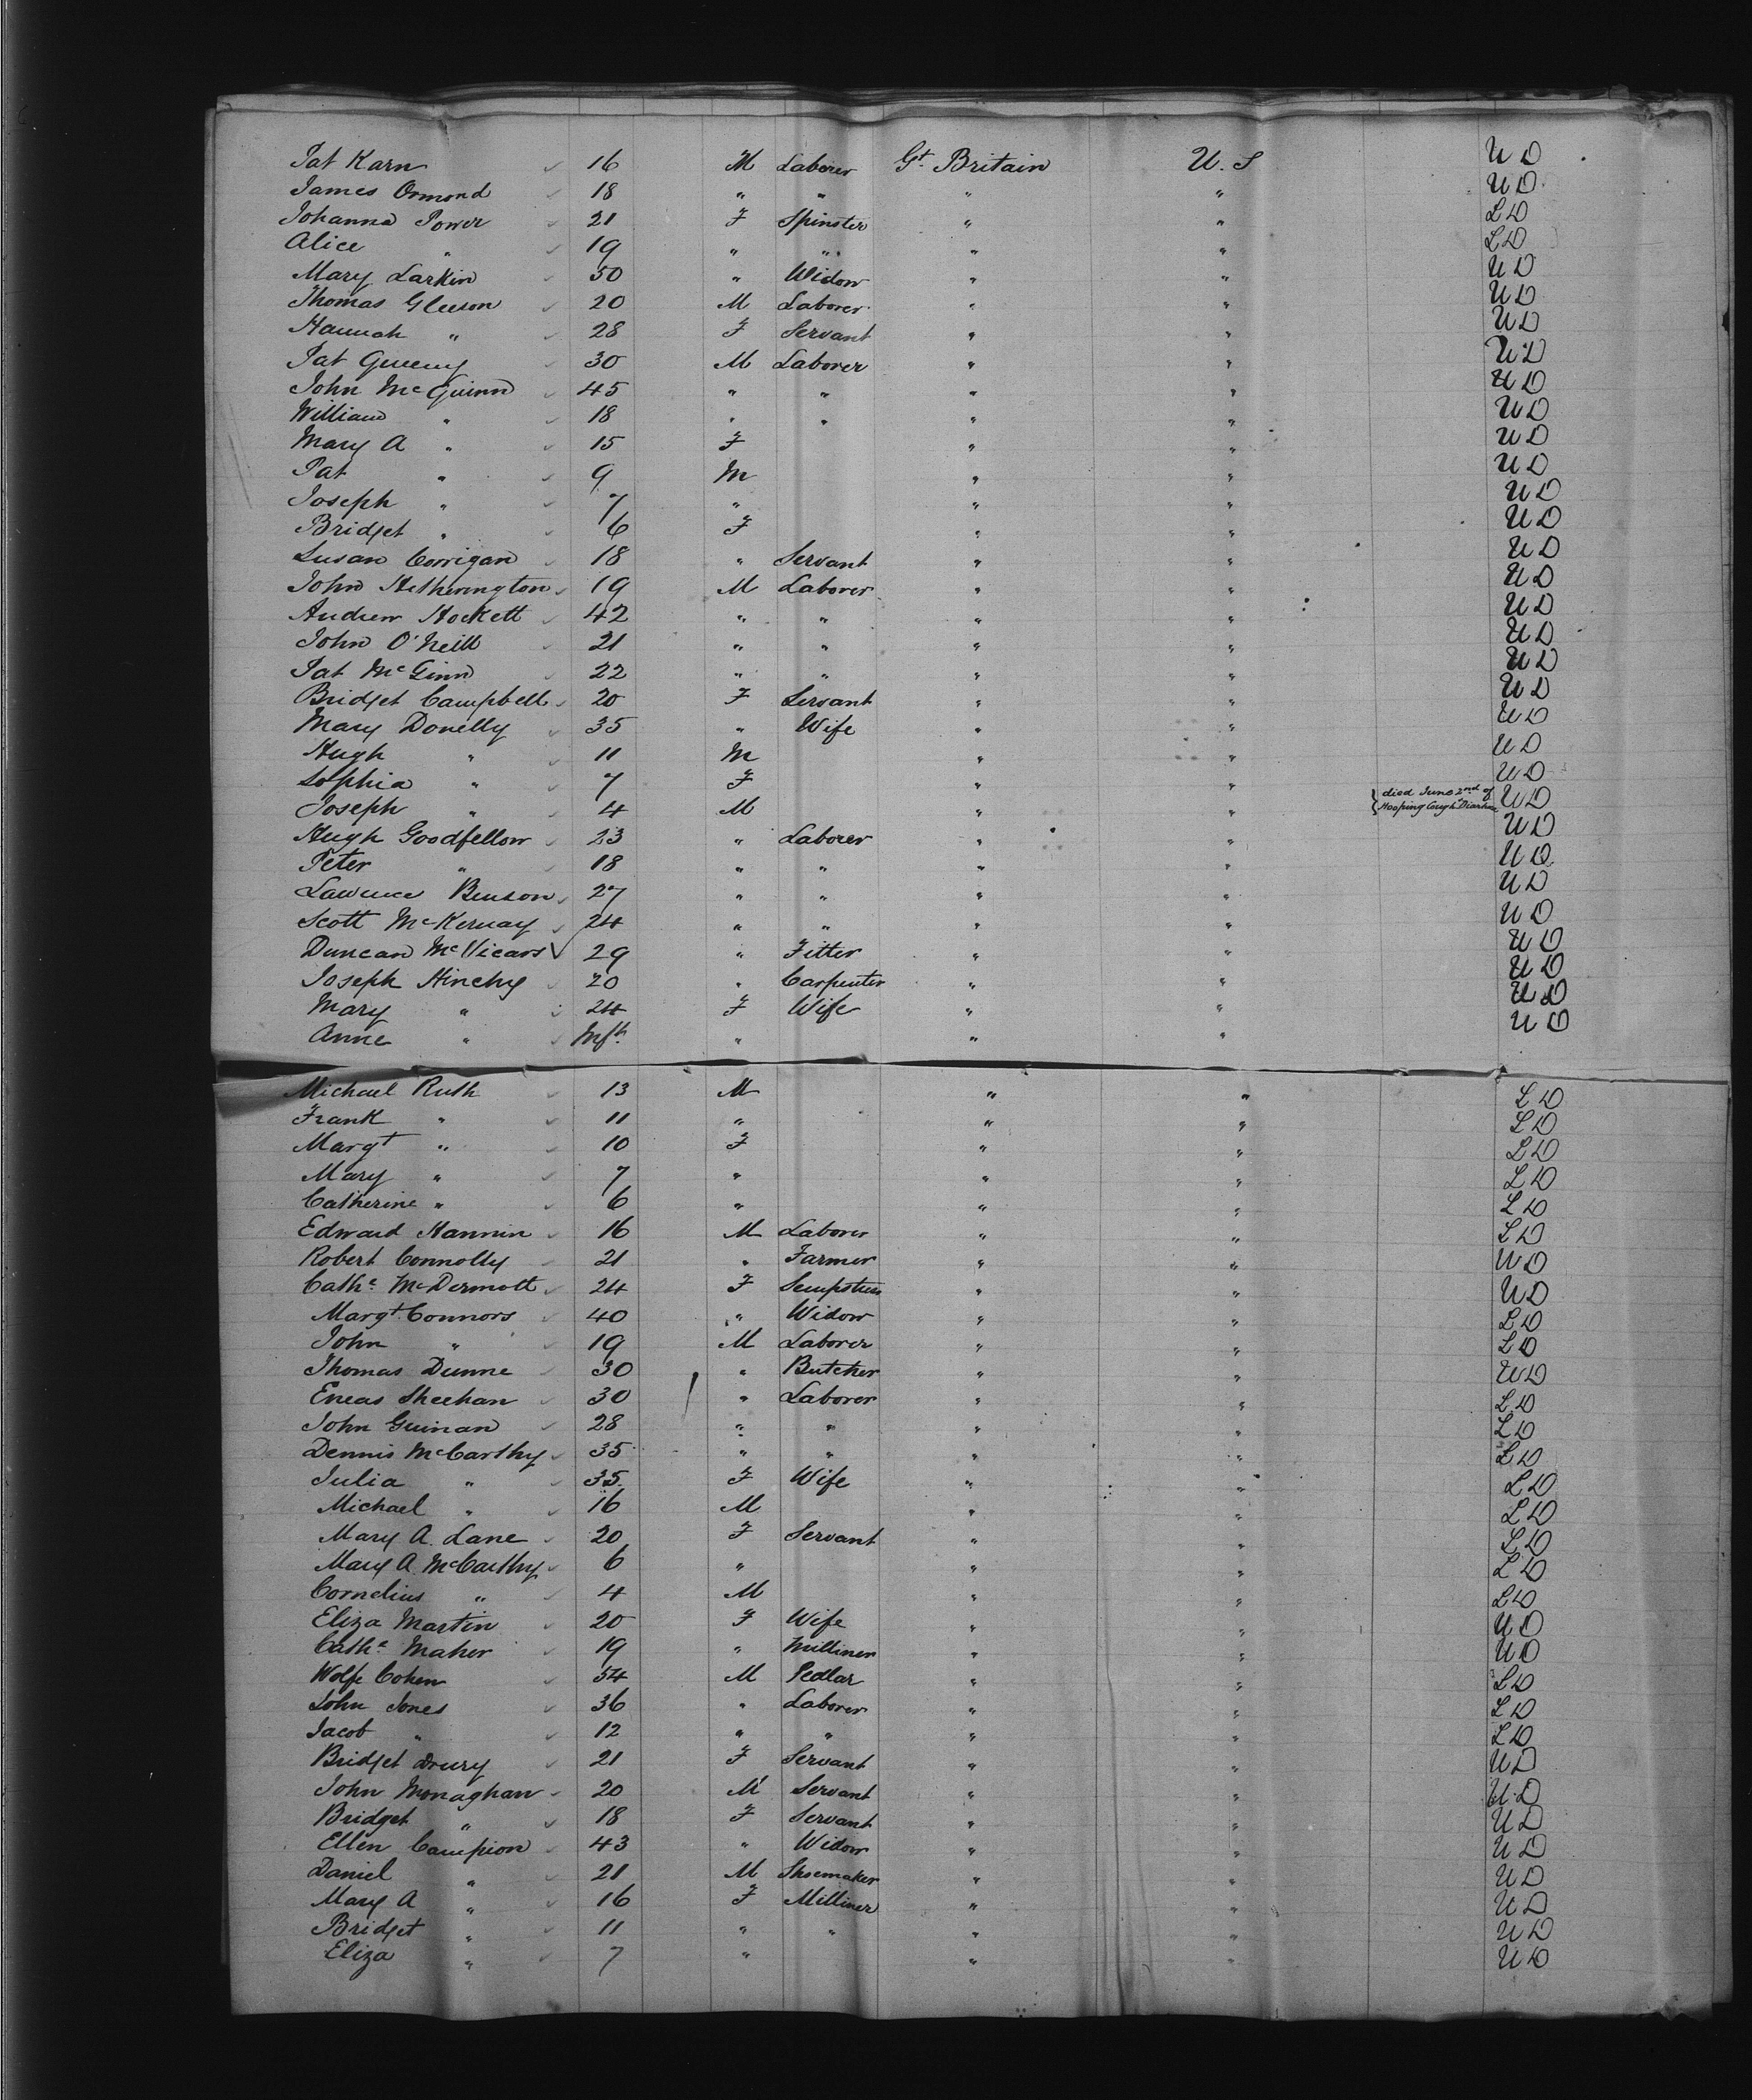 Pat Karn 16 M Laborer Gt. Britain U. S U D
James Ormond 18 " " " " U D
Johanna Power 21 F Spinster " " L D
Alice " 19 " " " " L D
Mary Larkin 50 " Widow " " U D
Thomas Gleeson 20 M Laborer " " U D
Hannah " 28 F Servant " " U D
Pat 30 M Laborer " " U D
John McGuinn 45 " " " " U D
William " 18 " " " " U D
Mary A " 15 F " " U D
Pat " 9 M " " U D
Joseph " 7 " " " U D
Bridget " 6 F " " U D
Susan Corrigan 18 " Servant " " U D
John Hetherington 19 M Laborer " " U D
Andrew Hockett 42 " " " " U D
John O'Neill 21 " " " " U D
Pat McGinn 22 " " " " U D
Bridget Campbell 20 F Servant " " U D
Mary Donelly 35 " Wife " " U D
Hugh " 11 M " " U D
Sophia " 7 F " " U D
Joseph " 4 M " " died June 2nd of Hooping Cough " Diarrhea U D
Hugh Goodfellow 23 " Laborer " " U D
Peter " 18 " " " " U D
Lawrence Benson 27 " " " " U D
Scott McKernay 24 " " " " U D
Duncan McVicars 29 " Fitter " " U D
Joseph Hinchy 20 " Carpenter " " U D
Mary " 24 F Wife " " U D
Anne " Inft. " " " U D
Michael Ruth 13 M " " L D
Frank " 11 " " " L D
Margt " 10 F " " L D
Mary " 7 " " " L D
Catherine " 6 " " " L D
Edward Hannin 16 M Laborer " " L D
Robert Connolly 21 " Farmer " " U D
Cathe. McDermott 24 F Sempstress " " U D
Margt. Connors 40 " Widow " " L D
John " 19 M Laborer " " L D
Thomas Dunne 30 " Butcher " " U D
Eneas Sheehan 30 " Laborer " " L D
John Guinan 28 " " " " L D
Dennis McCarthy 35 " " " " L D
Julia " 35 F Wife " " L D
Michael " 16 M " " L D
Mary A. Lane 20 F Servant " " L D
Mary A. McCarthy 6 " " " L D
Cornelius " 4 M " " L D
Eliza Martin 20 F Wife " " U D
Cathe. Maher 19 " Milliner " " U D
Wolfe Cohen 54 M Pedlar " " L D
John Jones 36 " Laborer " " L D
Jacob " 12 " " " " L D
Bridget Drury 21 F Servant " " U D
John Monaghan 20 M Servant " " U D
Bridget " 18 F Servant " " U D
Ellen Campion 43 " Widow " " U D
Daniel " 21 M Shoemaker " " U D
Mary A " 16 F Milliner " " U D
Bridget " 11 " " " " U D
Eliza " 7 " " " U D